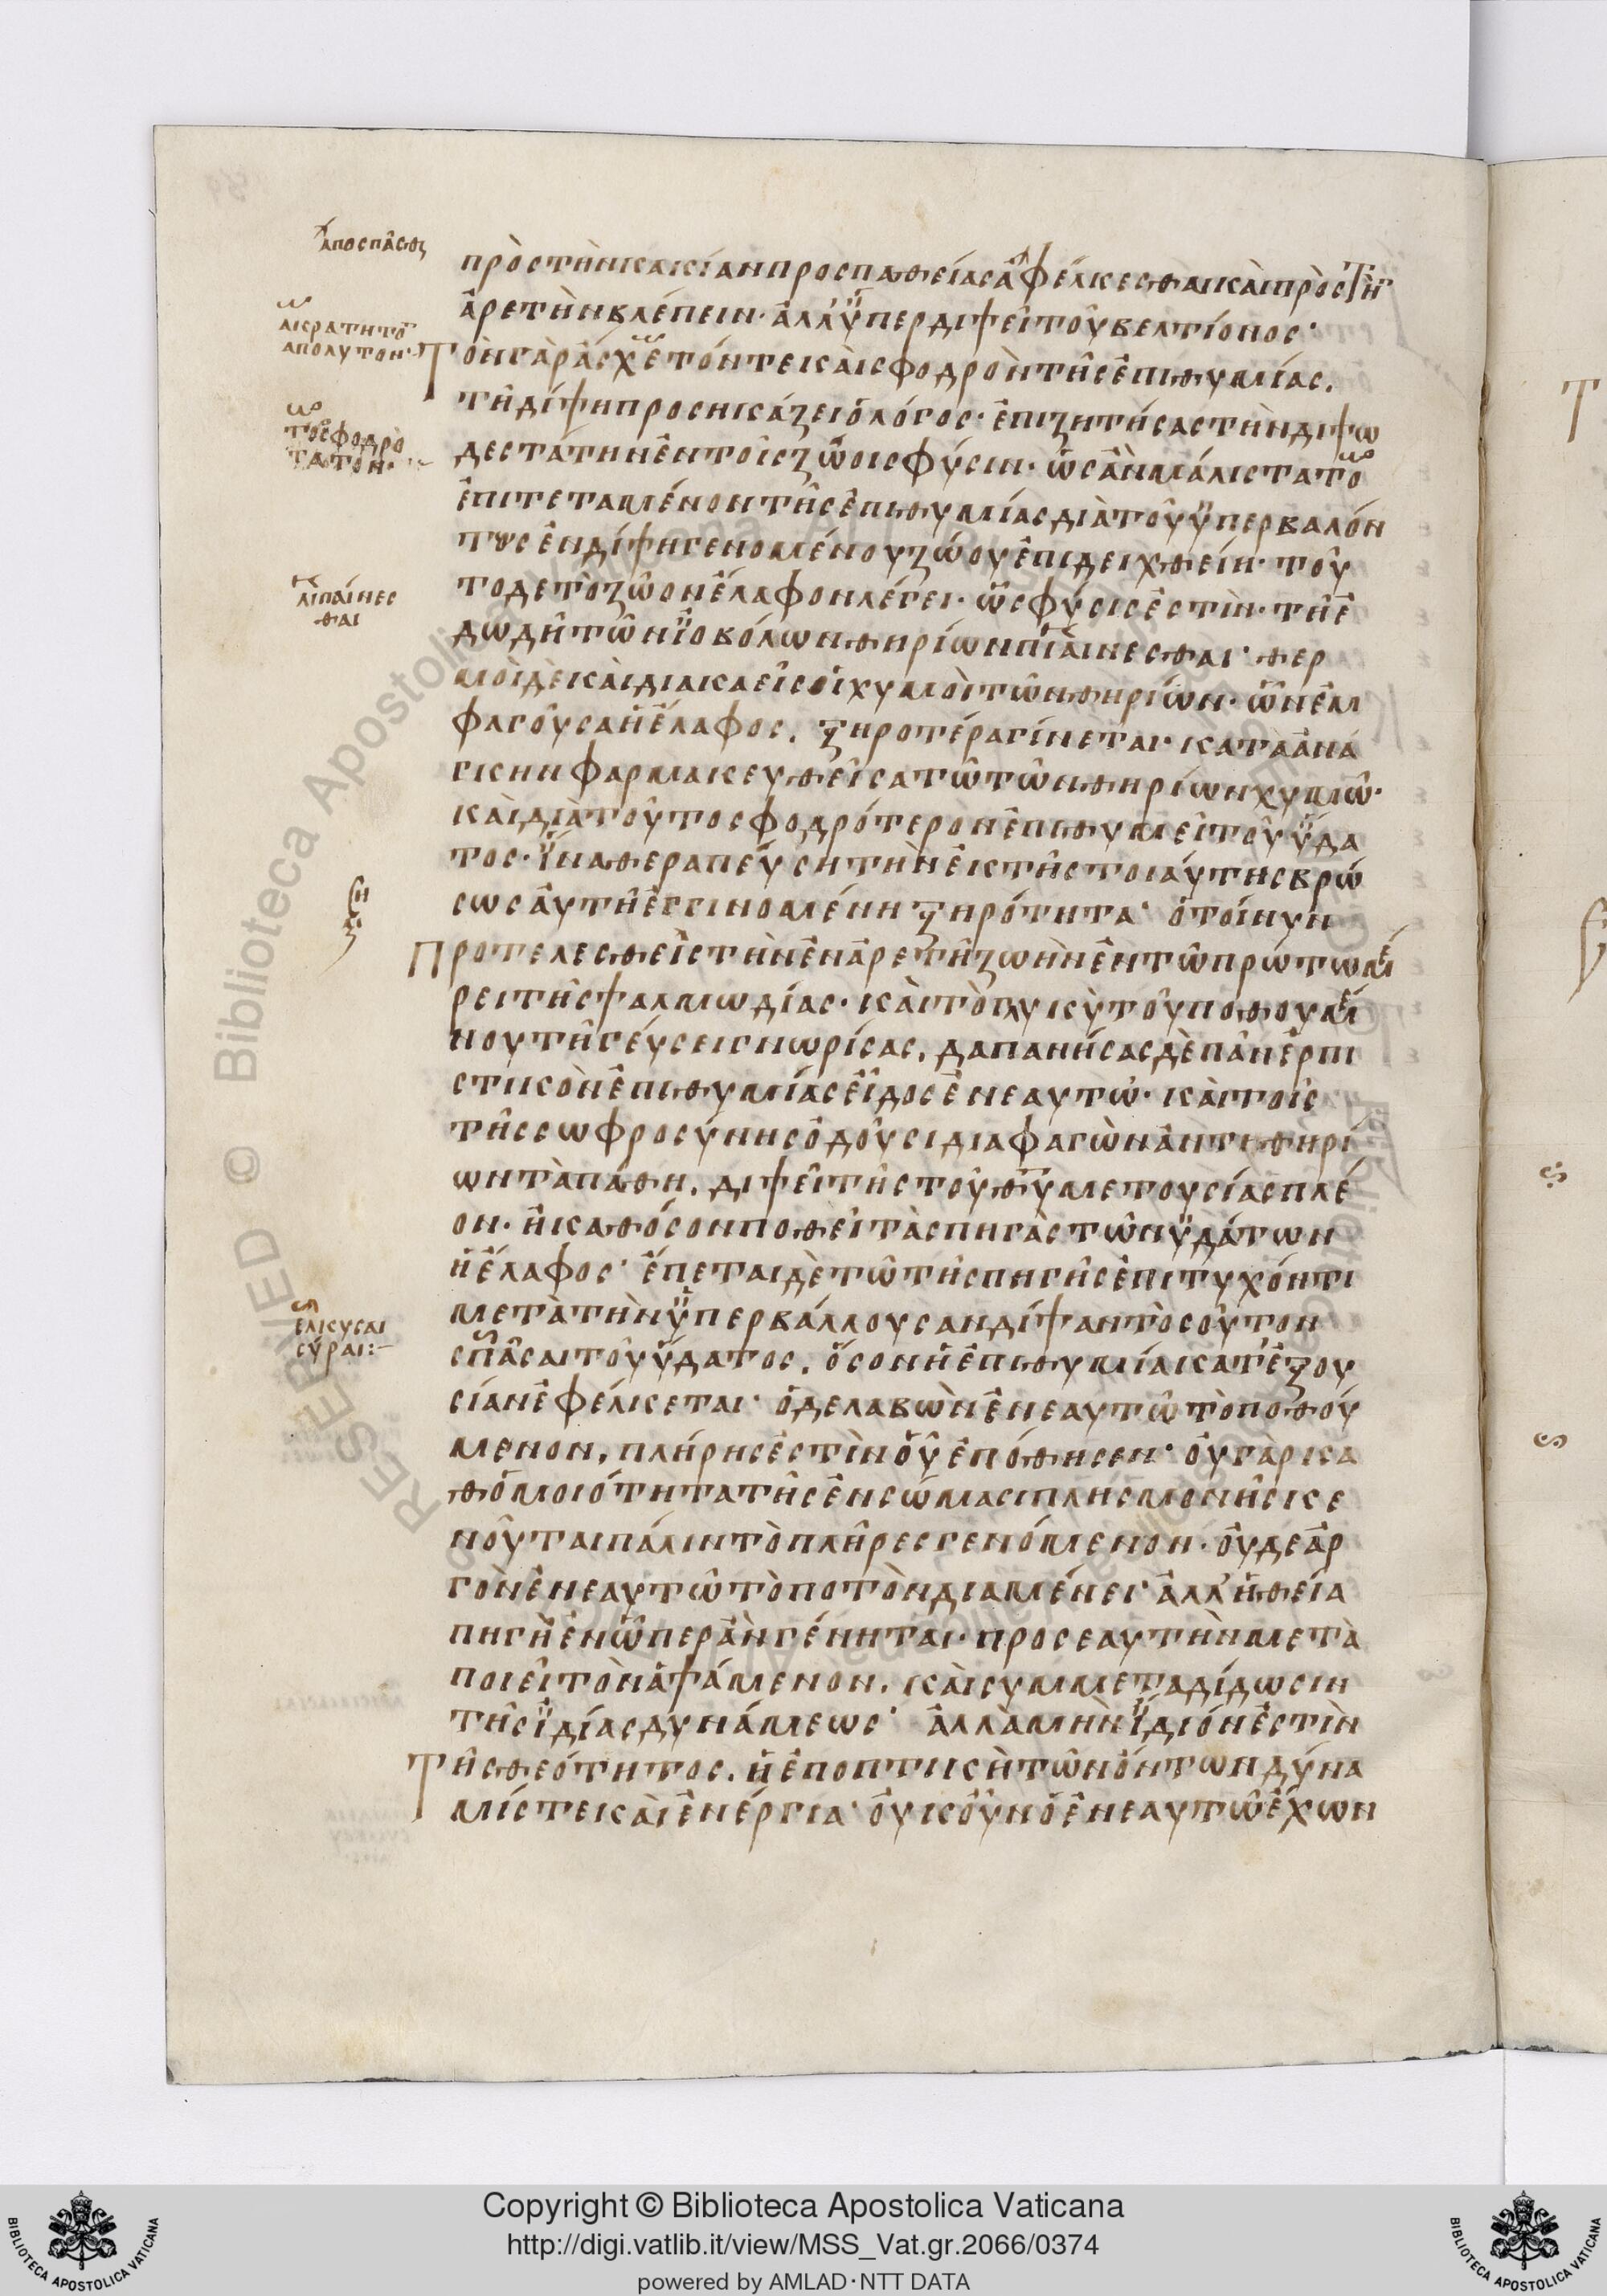 ἀποσπᾶσθαι
πρὸς τὴν κακίαν προσπαθείας ἀφέλκεσθαι καὶ πρὸς τὴν
ἀρετὴν βλέπειν· ἀλλ' ὑπερδιψεῖ τοῦ βελτίονος·
ἀκράτητον
ἀπόλυτον·
Τὸν γὰρ ἄσχετόν τε καὶ σφοδρὸν τῆς ἐπιθυμίας.
τῆ δίψη προσηκάζει ὁ λόγος· ἐπιζητήσας τὴν διψω
τὸ σφοδρό
τατον·
δεστάτην ἐν τοῖς ζώοις φύσιν· ὡς ἂν μάλιστα τὸ
ἐπιτεταμένον τῆς ἐπιθυμίας διὰ τοῦ ὑπερβαλόν
τως ἐν δίψη γενομένου ζώου ἐπιδειχθείη· τοῦ
το δὲ τὸ ζῶον ἔλαφον λέγει· ὡς φύσις ἐστὶν· τῆ ἐ
λιπαίνεσ
θαι
δωδῆ τῶν ἰοβόλων θηρίων πιαίνεσθαι· θερ
μοὶ δὲ καὶ διακαεῖς οἱ χυμοὶ τῶν θηρίων· ὧν ἐμ
φαγοῦσα ἡ ἔλαφος, ξηροτέρα γίνεται· κατὰ ἀνά
γκην φαρμακευθεῖσα τῶ τῶν θηρίων χυμῶ·
καὶ διὰ τοῦτο σφοδρότερον ἐπιθυμεῖ τοῦ ὕδα
τος· ἵνα θεραπεύση τὴν ἐκ τῆς τοιαύτης βρώ
σεως αὐτῆ ἐγγινομένην ξηρότητα· ὁ τοίνυν
Προτελεσθεὶς τὴν ἐν ἀρετῆ ζωὴν ἐν τῶ πρώτω μέ
ρει τῆς ψαλμωδίας· καὶ τὸ γλυκὺ τοῦ ποθουμέ
νου τῆ γεύσει γνωρίσας, δαπανήσας δὲ πᾶν ἑρπι
στικὸν ἐπιθυμίας εἶδος ἐν ἑαυτῶ· καὶ τοῖς
τῆς σωφροσύνης ὀδοῦσι διαφαγὼν ἀντὶ θηρί
ων τὰ πάθη, διψεῖ τῆς τοῦ θυ μετουσίας πλέ
ον· ἢ καθόσον ποθεῖ τὰς πηγὰς τῶν ὑδάτων
ἡ ἔλαφος· ἕπεται δὲ τῶ τῆς πηγῆς ἐπιτυχόντι
μετὰ τὴν ὑπερβάλλουσαν δίψαν τοσοῦτον
ἑλκύσαι
σύραι:–
σπᾶσαι τοῦ ὕδατος, ὅσον ἡ ἐπιθυμία κατ' ἐξου
σίαν ἐφέλκεται· ὁ δὲ λαβὼν ἐν ἑαυτῶ τὸ ποθού
μενον, πλήρης ἐστὶν οὗ ἐπόθησεν· οὐ γὰρ κα
θ' ὁμοιότητα τῆς ἐν σώμασι πλησμονῆς κε
νοῦται πάλιν τὸ πλῆρες γενόμενον· οὐδὲ ἀρ
γὸν ἐν ἑαυτῶ τὸ ποτὸν διαμένει· ἀλλ' ἡ θεία
πηγὴ ἐν ὧπερ ἂν γένηται· πρὸς ἑαυτὴν μετα
ποιεῖ τὸν ἁψάμενον, καὶ συμμεταδίδωσιν
τῆς ἰδίας δυνάμεως· ἀλλὰ μὴν ἴδιόν ἐστιν
Τῆς θεότητος, ἡ ἐποπτικὴ τῶν ὄντων δύνα
μίς τε καὶ ἐνέργια· οὐκοῦν ὁ ἐν ἑαυτῶ ἔχων
Copyright © Biblioteca Apostolica Vaticana
http://digi.vatlib.it/view/MSS_Vat.gr.2066/0374
powered by AMLAD·NTT DATA